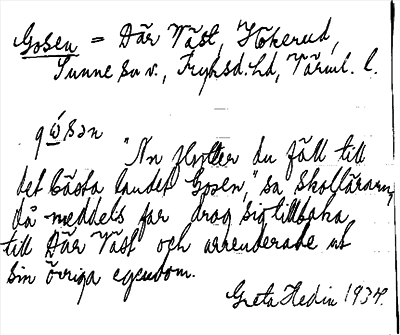 Gosen = Där Väst, Hökerud,
Sunne sn v., Fryksd. hd, Värml. l.
gὼsən
"Nu flytter du fäll till
det bästa landet Gosen," sa skolläraren,
då meddels far drog sig tillbaka
till Där Väst och arrenderade ut
sin övriga egendom.
Greta Hedin 1934.